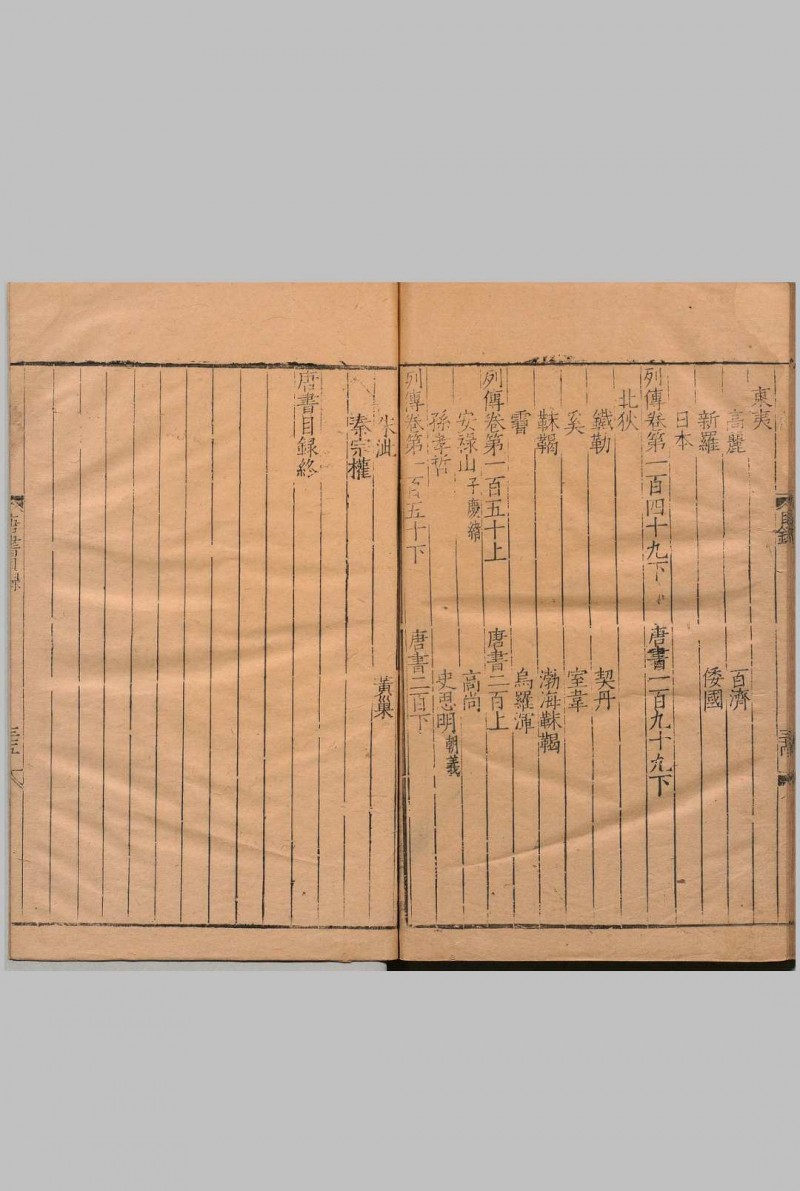 東夷
高麗 百濟
新羅 倭國
日本
列傳卷第一百四十九下 唐書一百九十九下
北狄
鐵勒 契丹
奚 室韋
靺鞨 渤海靺鞨
霫 烏羅渾
列傳卷第一百五十上 唐書二百上
安祿山子慶緒 高尚
孫孝哲 史思明朝義
列傳卷第一百五十下 唐書二百下
朱泚 黃巢
秦宗權
唐書目録終
目録
唐書目録